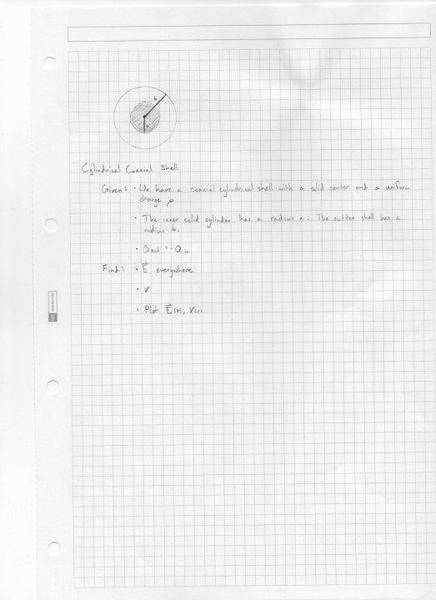 b
a
Cylindrical Coaxial Shell
Given: • We have a coaxial cylindrical shell with a solid center and a uniform
charge ρ
• The inner solid cylinder has a radius a. The outter shell has a
radius b.
• Qout = -Qin
Find: • E⃗ everywhere
• V
• Plot E⃗(r), V(r)